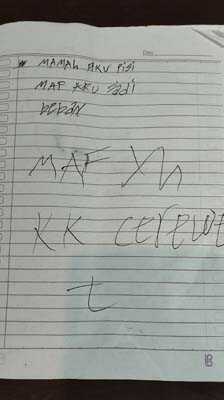 MAMAH AKU PISI
MAF AKU JADI
beban
MAF Yh
KK cerewe
t